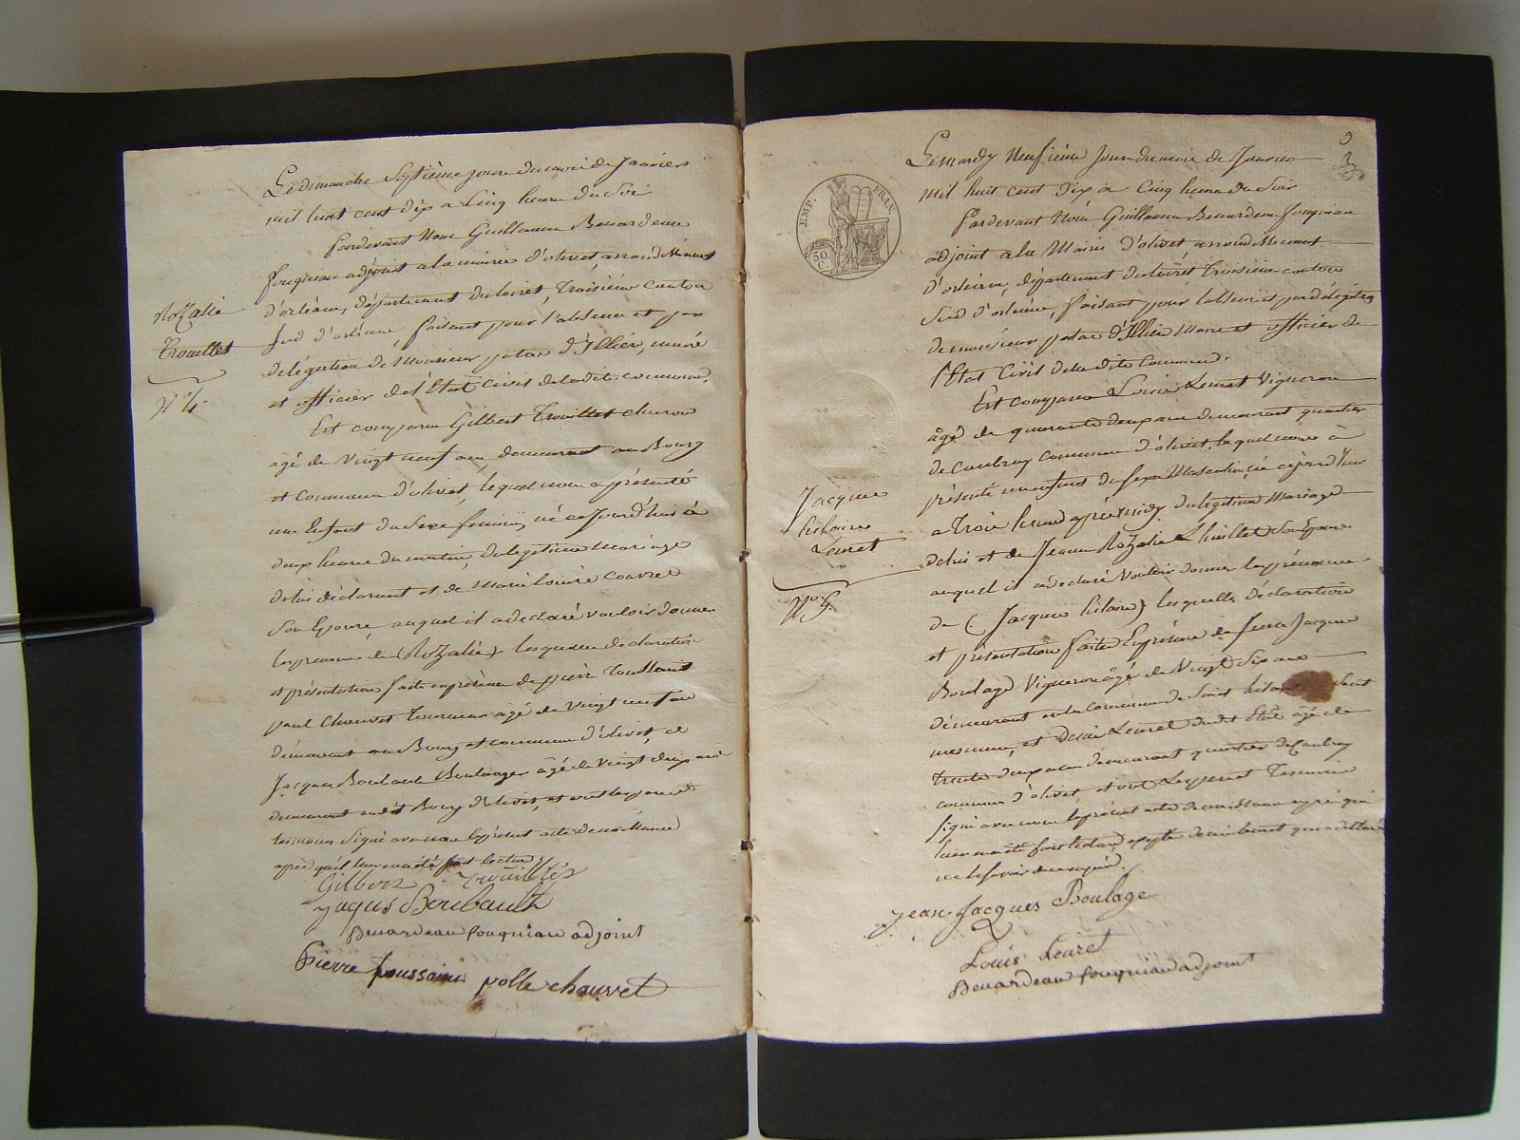 Le dimanche Septième jour du mois de Janvier
mil huit cent dix a Cinq heure du Soir
Pardevant Nous Guillaume Benardeau
fougniau adjoint a la mairie d'olivet, arrondiment
d'orléans, département du loiret, Troisième Canton
Sud d'orléans, faisant pour l'absence et par
délégation de Monsieur patas d'Illiers, maire
et officier de l'Etat Civil de la dite commune.
Est comparu Gilbert Trouillet charon
âgé de vingt neuf ans demeurant au Bourg
et Commune d'olivet, lequel nous a présenté
un Enfant du Sexe feminin, né ce Jourd'hui à
deux heures du matin, de légitime Mariage
de lui déclarant et de Marie Louise Couvret
Son Epouse, auquel il a déclaré vouloir donner
les prenoms de (Rozalie) lesquelles declaration
et présentation faite en présence de pierre Toussaint
paul Chauvet Tourneur agé de vingt neuf ans
demeurant au Bourg et commune d'olivet, et
Jacques Boulault Boulanger âgé de vingt deux ans
demeurant audit Bourg d'olivet, et ont les pere et
temoins Signé avec nous le présent acte de naissance
après qu'il leur en a été fait lecture
Rozalie
Trouillet
N.° 4.
Gilbert Trouillet
jaque Boubault
Benardeau fougniau adjoint
Pierre toussain polle chauvet
Le mardy Neufième Jour du mois de Janvier
mil huit cent dix a Cinq heure du Soir
Pardevant Nous Guillaume Benardeau fougniau
adjoint a la Mairie d'olivet arrondiment
d'orléans, département du loiret Troisième canton
Sud d'orléans, faisant pour l'absence et par délégation
de monsieur patas d'Illiers Maire et officier de
l'Etat Civil de la dite Commune.
Est comparu Louis Leuret Vigneron
âgé de quarante deux ans demeurant quartier
de Caubray Commune d'olivet, lequel nous a
présenté un enfant du Sexe Masculin, né ce jourd'hui
a Trois heures après midy du légitime Mariage
de lui et de Jeanne Rozalie Lhuillet Son Epouse
auquel il a declaré Vouloir donner les prénoms
de (Jacques hilaire) lesquelles déclaration
et présentation faites En présence de Jean Jacques
Boulage Vigneron âgé de Vingt Six ans
démeurant en la Commune de Saint hilaire Saint
mesmin, et Leuret dudit Etat âgé de
trente deux ans demeurant quartier de Caubray
commune d'olivet, et ont Les pere et Temoin
signé avec nous le présent acte de naissance après qu'il
leur en a été fait lecture excepté Leuret qui a déclaré
ne le savoir de ce requis.
Jacques
hilaire
Leuret
N.° 5.
EMP. FRAN.
50
C.
jean Jacques Boulage
Louis Leuret
Benardeau fougniau adjoint